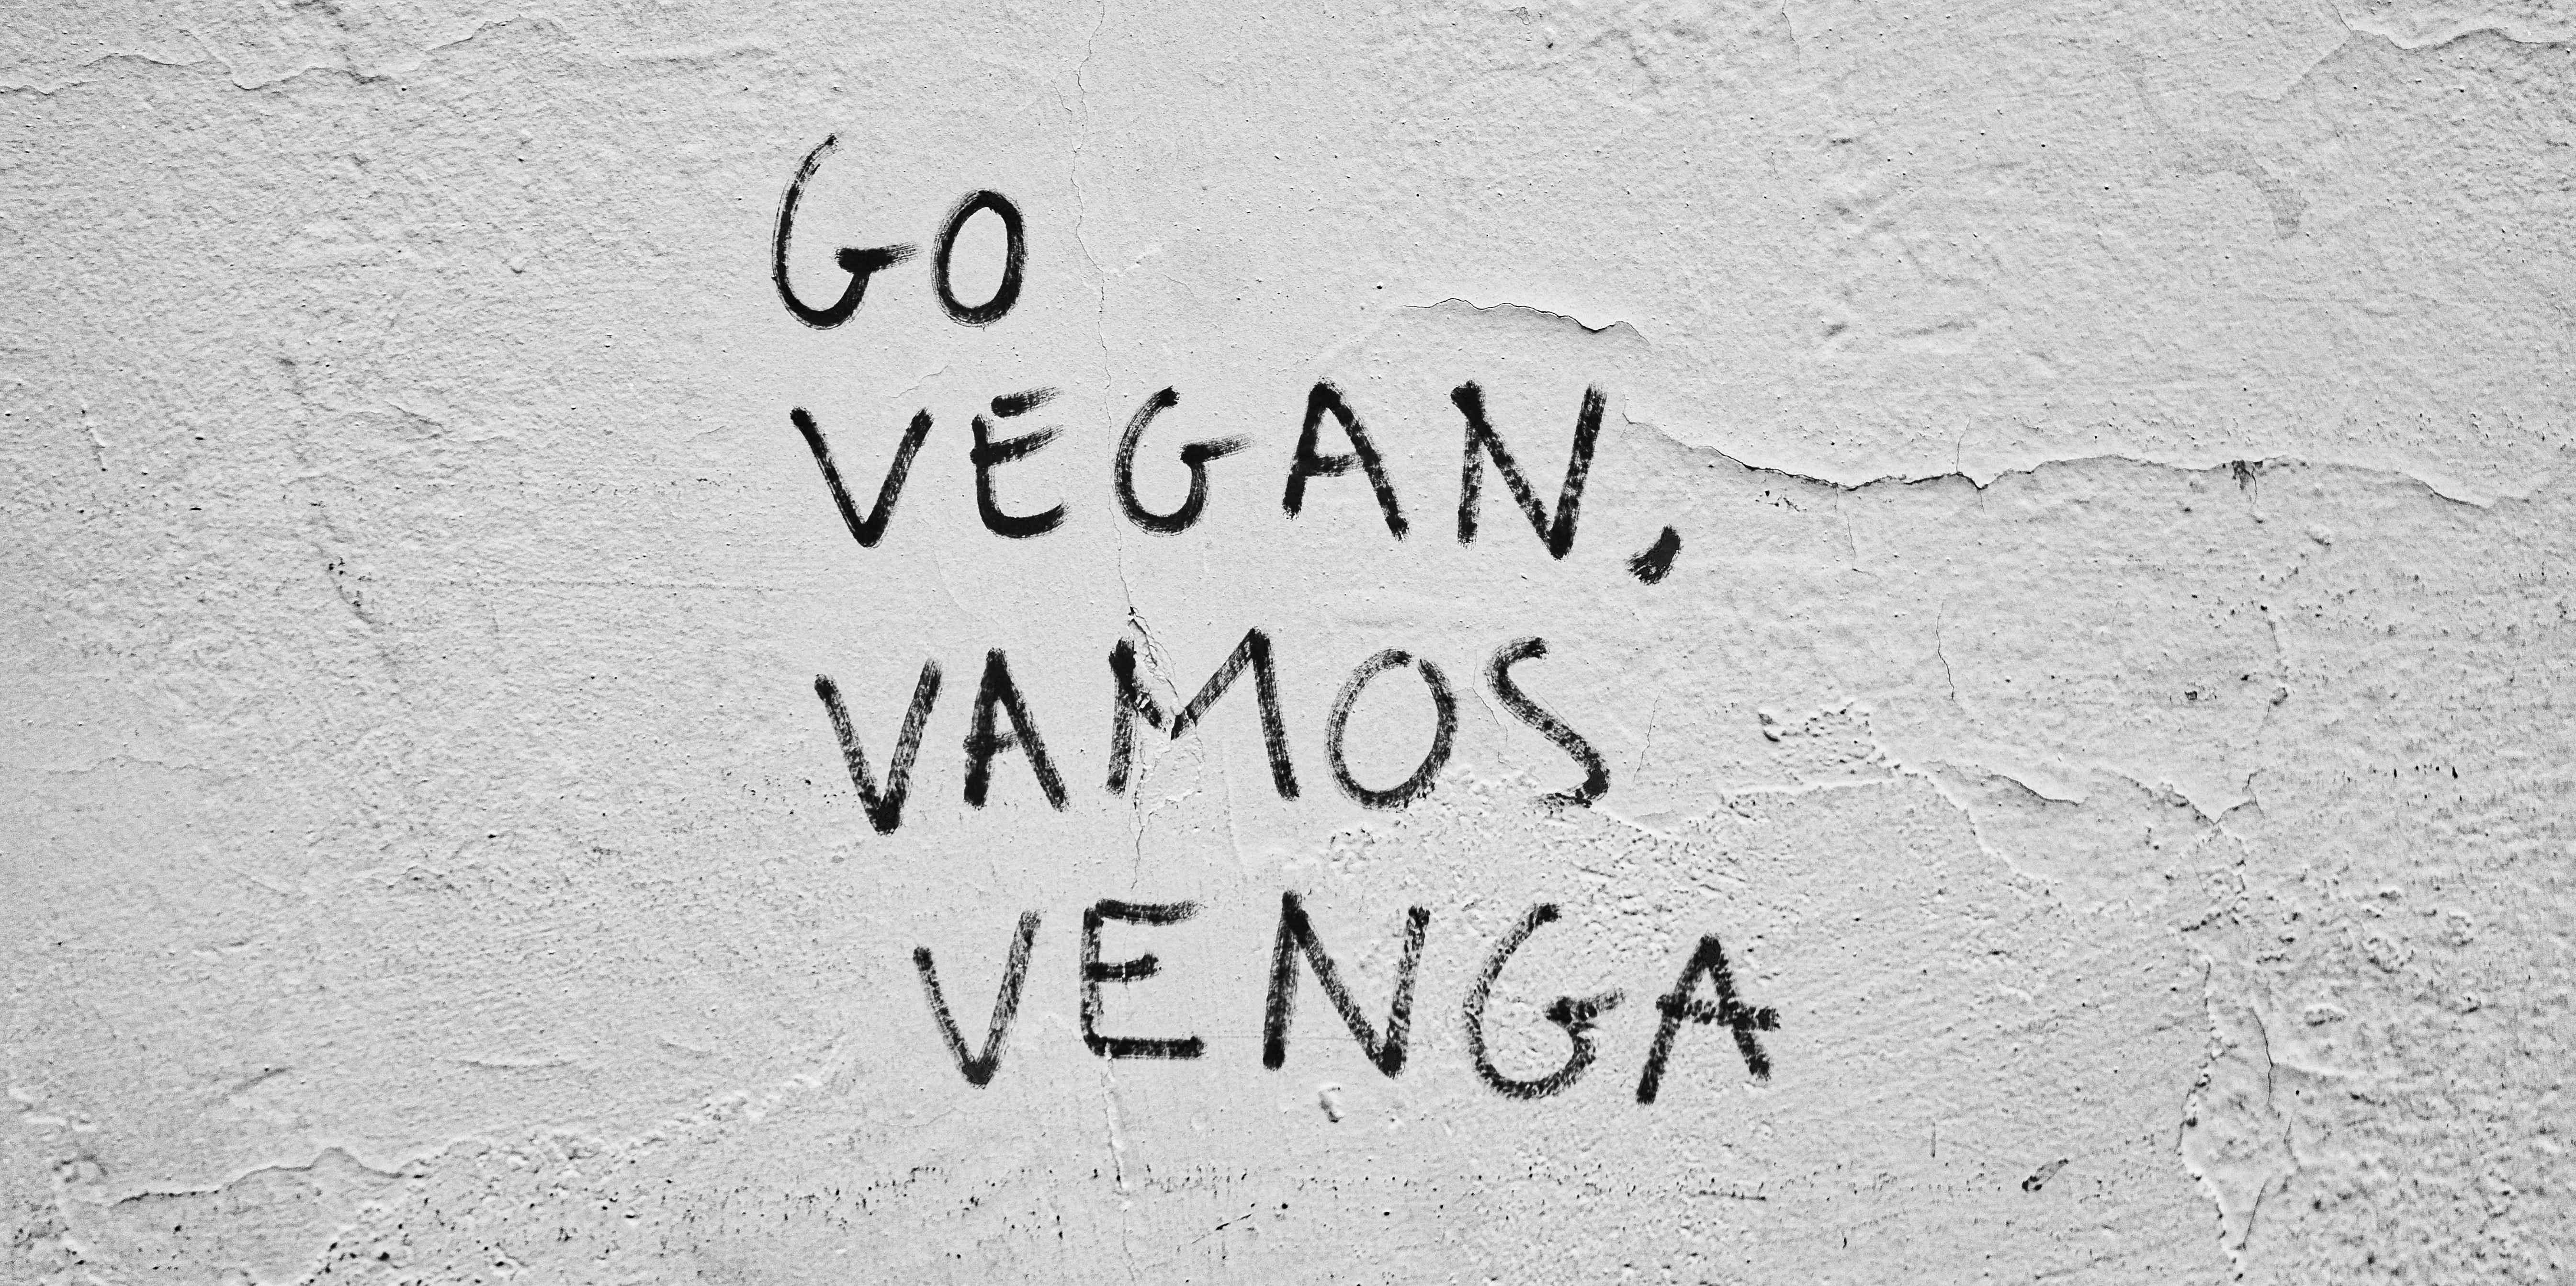 GO
VEGAN,
VAMOS
VENGA